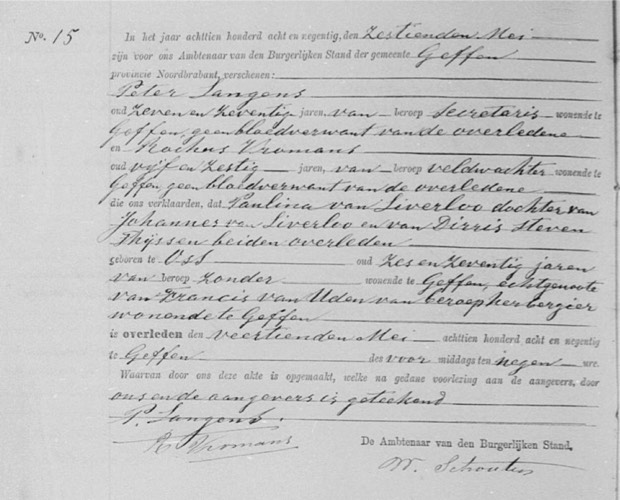 No. 15
In het jaar achttien honderd acht en negentig, den zestienden Mei
zijn voor ons Ambtenaar van den Burgerlijken Stand der gemeente Geffen
provincie Noordbrabant, verschenen:
Peter Langens
oud zeven en zeventig jaren, van beroep secretaris wonende te
Geffen, geen bloedverwant van de overledene
en Rochus Vromans
oud vijf en zestig jaren, van beroep veldwachter wonende te
Geffen geen bloedverwant van de overledene
die ons verklaarden, dat Paulina van Liverloo dochter van
Johannes van Liverloo en van Dirris Steven
Thijssen beiden overleden
geboren te Oss oud zes en zeventig jaren
van beroep zonder wonende te Geffen, echtgenoote
van Francis van Uden van beroep herbergier
wonende te Geffen
is overleden den veertienden Mei achttien honderd acht en negentig
te Geffen des voor middags ten negen ure.
Waarvan door ons deze akte is opgemaakt, welke na gedane voorlezing aan de aangevers, door
ons en de aangevers is geteekend
P. Langens.
R Vromans
De Ambtenaar van den Burgerlijken Stand,
W. Schouten